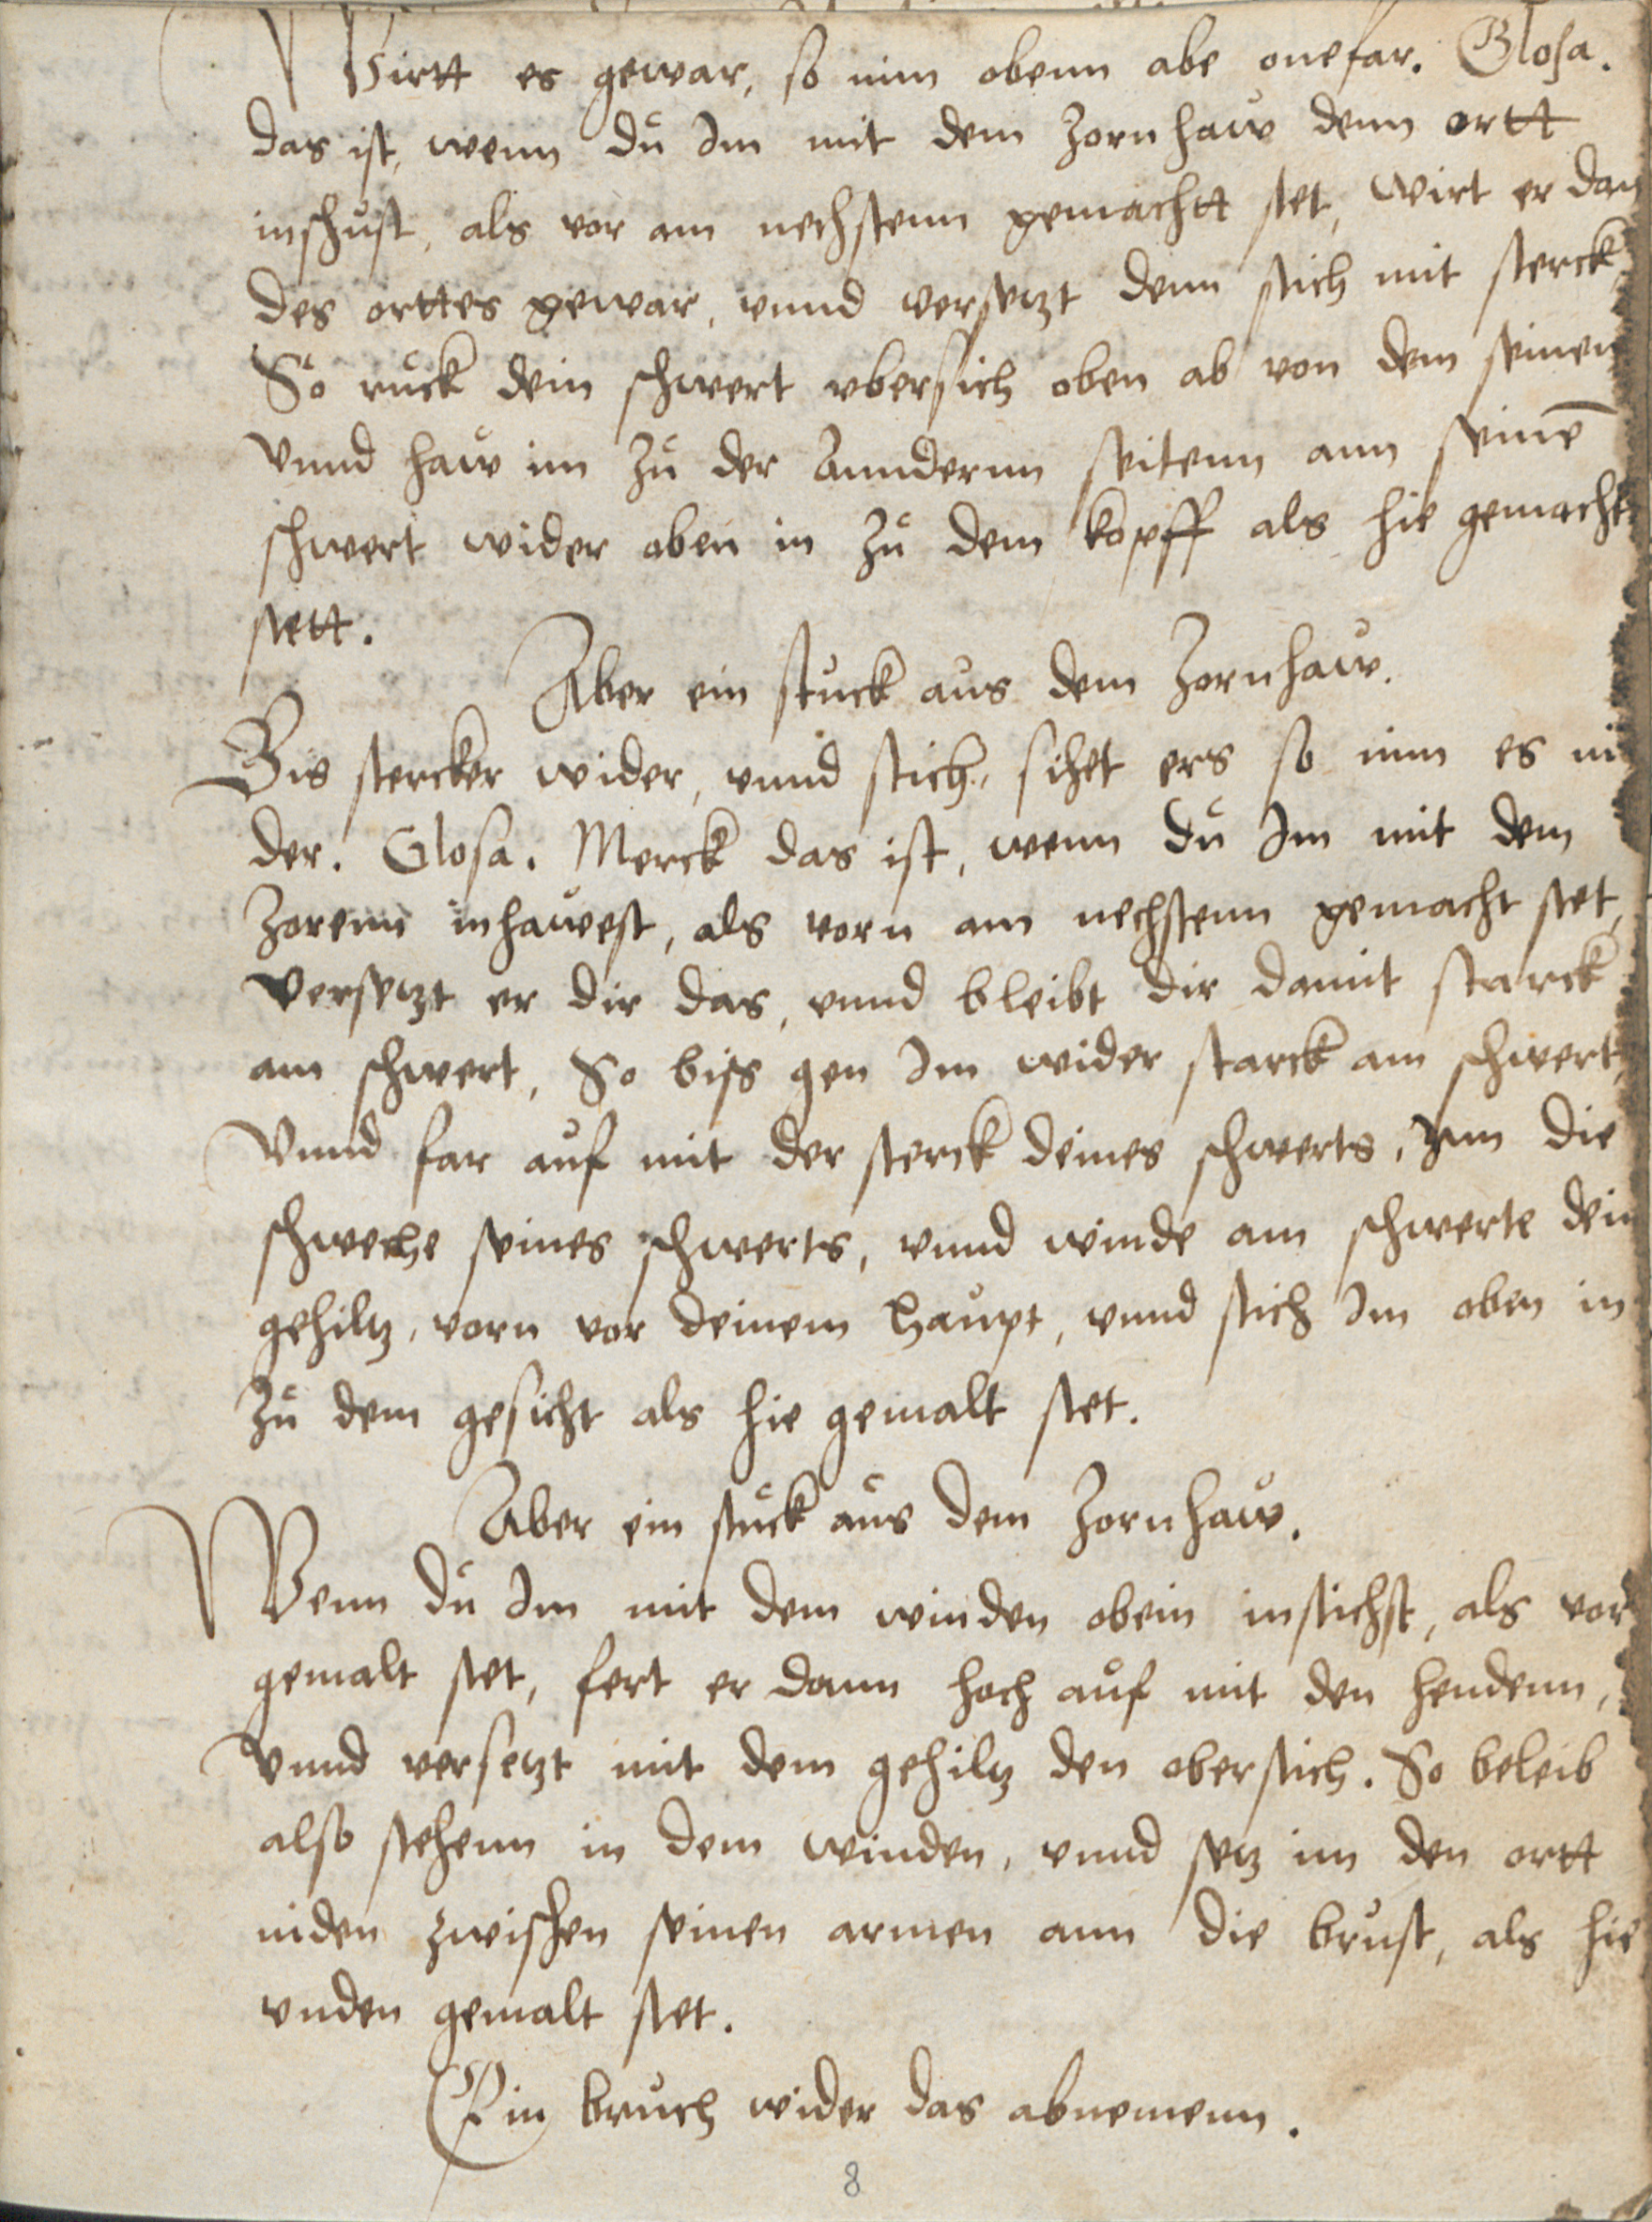 Wirtt es gewar, so nim obenn abe onefar. Glosa.
das ist, wenn dů Im mit dem zornhaw denn ortt
inschůst, als vor am nechstenn gemachtt stet, wirt er dan
des orttes gewar, unnd versetzt denn stich mit sterck
So růck dein schwert ubersich oben ab von dem seinen
Unnd haw im zů der Anndernn seitenn ann seinē
schwert wider oben in zů dem kopff als hie gemacht
stett.
Aber ein stuck aus dem Zornhaw.
Bis stercker wider, unnd stich, sihet ers so nim es ni
der. Glosa. Merck das ist, wenn dů Im mit dem
Zorenn inhawest, als vorn am nechstenn gemacht stet,
versetzt er dir das, unnd bleibt dir damit starck
am schwert, So biss gen Im wider starck am schwert,
Unnd far auf mit der sterck deines schwerts, Inn die
schweche seines schwerts, unnd winde am schwerte dein
gehiltz, vorn vor deinem haupt, unnd stich Im oben in
zů dem gesicht als hie gemalt stet.
Aber ein stůck aůs dem Zornhaw.
Wenn dů Im mit dem winden obein instichst, als vor
gemalt stet, fert er dann hoch aůf mit den hendenn,
Unnd versetzt mit dem gehiltz den oberstich. So beleib
also stehenn in dem winden, unnd setz im den ortt
niden zwischen seinen armen ann die brůst, als hie
unden gemalt stet.
Ein bruch wider das abnemenn.
8